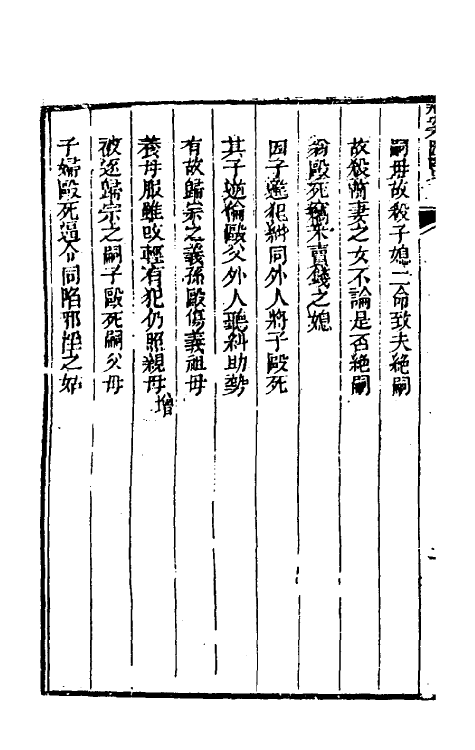 嗣母故殺子媳二命致夫絶嗣
故殺前妻之女不論是否絶嗣
翁毆死竊米賣錢之媳
因子違犯糾同外人將子毆死
其子逆倫毆父外人聽糾助勢
有故歸宗之義孫毆傷義祖母
養母服雖改輕有犯仍照親母增
被逐歸宗之嗣子毆死嗣父母
子婦毆死逼令同陷邪淫之姑